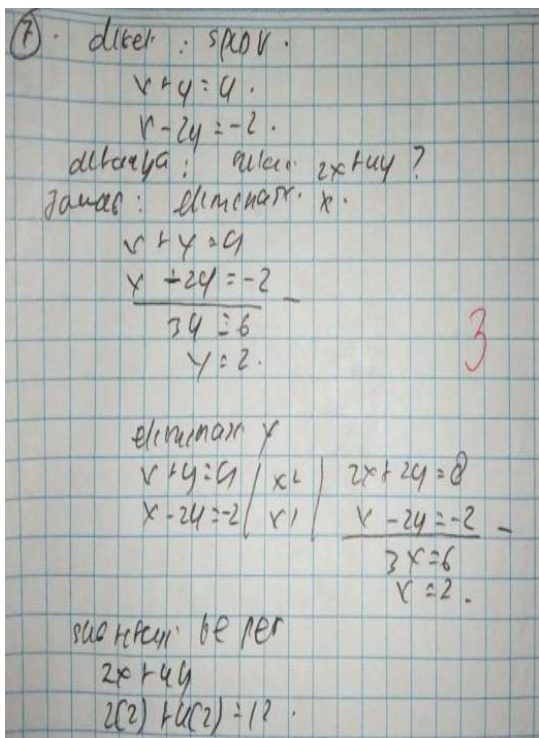 7. diket : SPLDV.
x + y = 4.
x - 2y = -2.
ditanya : nilai 2x+4y ?
Jawab : eliminasi x.
x + y = 4
x - 2y = -2 -
3y = 6
y = 2.
3
eliminasi y
x + y = 4 | x2 | 2x + 2y = 8
x - 2y = -2 | x1 | x - 2y = -2 -
3x = 6
x = 2.
substitusi ke per
2x + 4y
2(2) + 4(2) = 12.